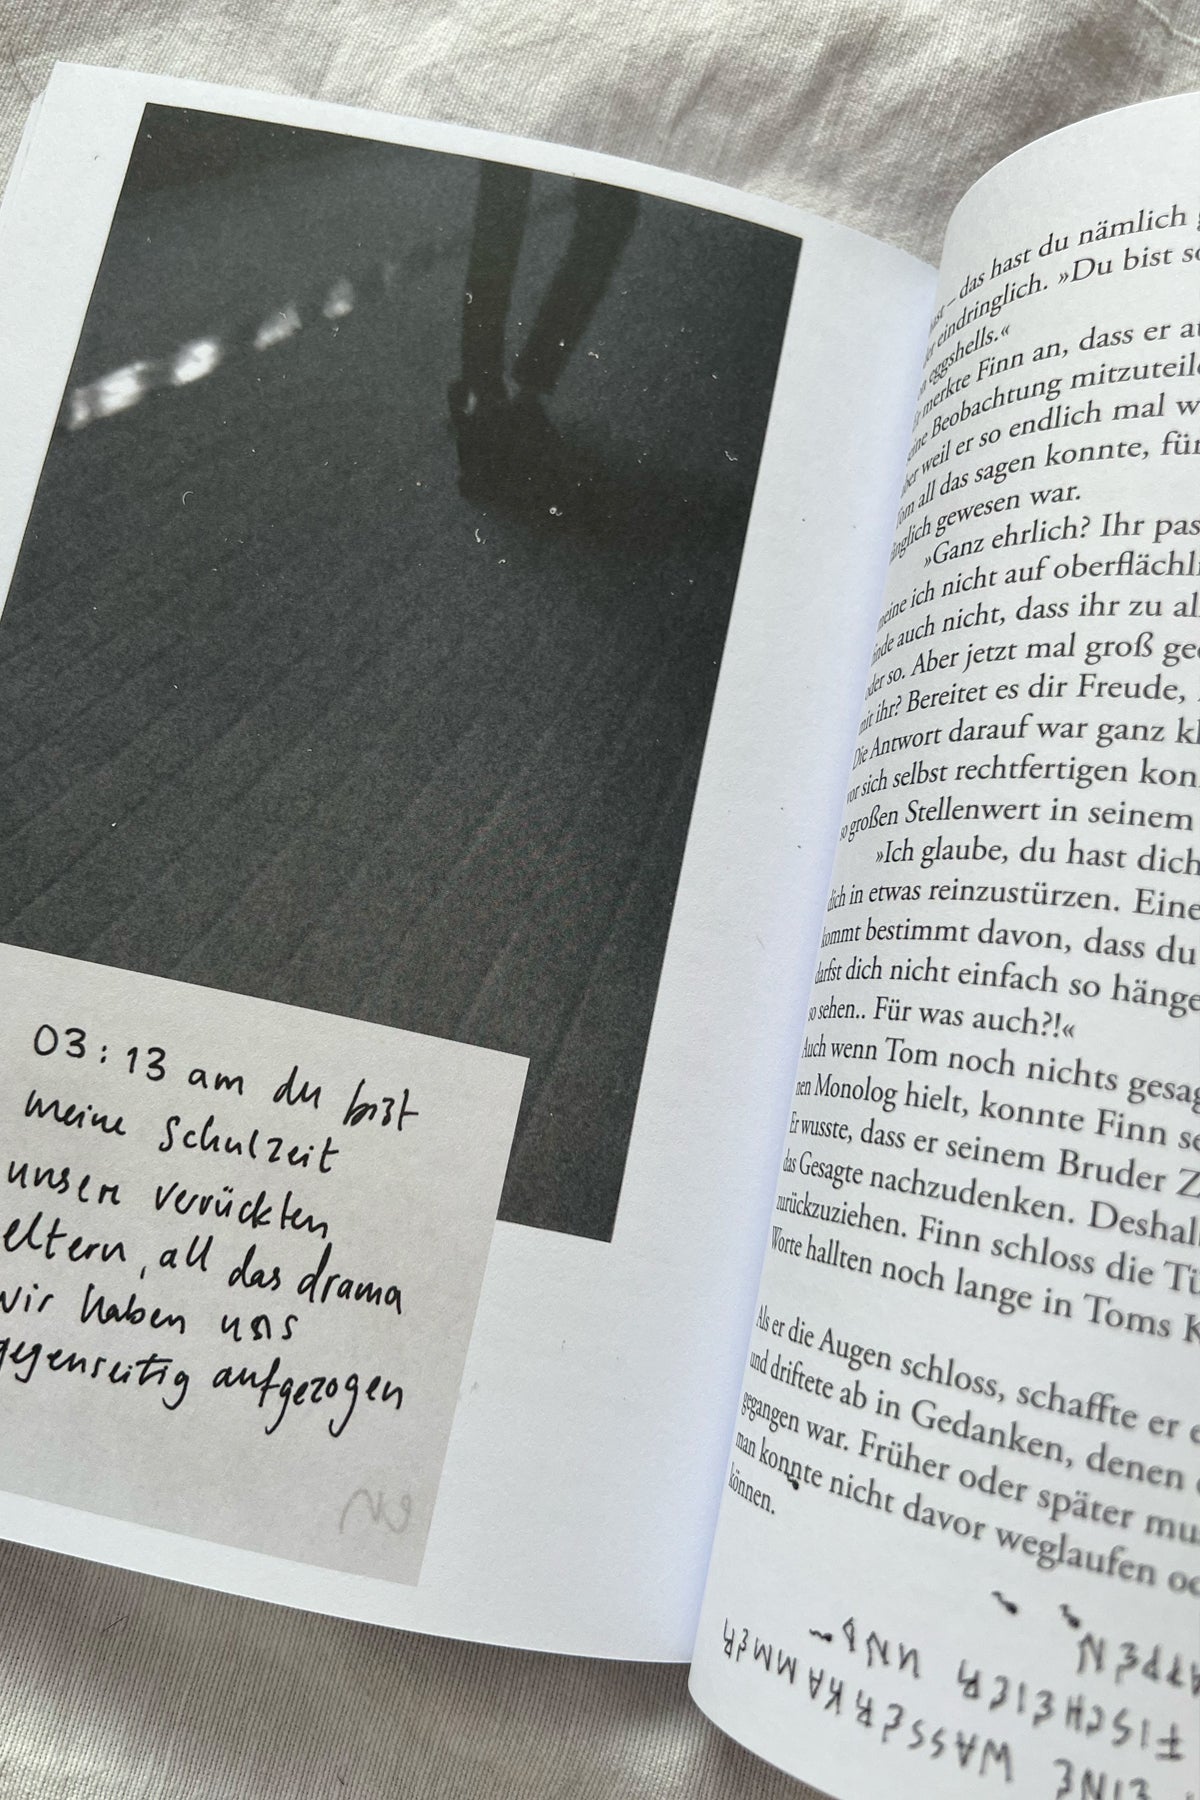 03:13 am du bist
meine Schulzeit
unsere verrückten
eltern, all das drama
wir haben uns
gegenseitig aufgezogen
– das hast du nämlich
eindringlich. »Du bist
eggshells.«
merkte Finn an, dass er
Beobachtung mitzuteilen
aber weil er so endlich mal
Tom all das sagen konnte, für
gewesen war.
»Ganz ehrlich? Ihr
meine ich nicht auf
finde auch nicht, dass ihr zu
oder so. Aber jetzt mal groß
mit ihr? Bereitet es dir Freude,
Die Antwort darauf war ganz
vor sich selbst rechtfertigen
so großen Stellenwert in seinem
»Ich glaube, du hast dich
dich in etwas reinzustürzen. Eine
kommt bestimmt davon, dass du
darfst dich nicht einfach so
so sehen.. Für was auch?!«
Auch wenn Tom noch nichts
nen Monolog hielt, konnte Finn
Er wusste, dass er seinem Bruder
das Gesagte nachzudenken.
zurückzuziehen. Finn schloss die
Worte hallten noch lange in Toms
Als er die Augen schloss, schaffte er
und driftete ab in Gedanken, denen
gegangen war. Früher oder später
man konnte nicht davor weglaufen
können.
EINE WASSERKAMMER
FISCHEIER UND